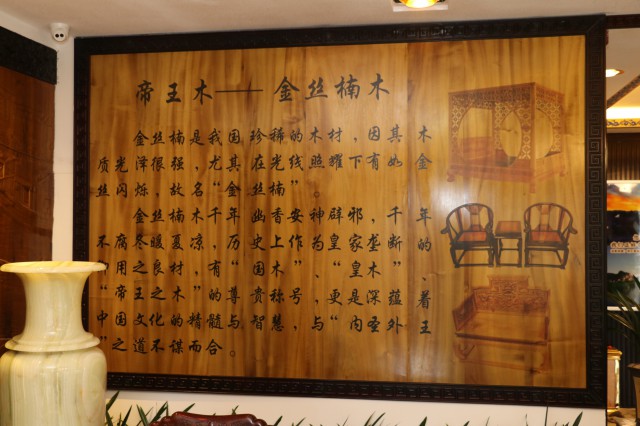 帝王木——金丝楠木
金丝楠是我国珍稀的木材，因其木
质光泽很强，尤其在光线照耀下有如金
丝闪烁，故名“金丝楠”。
金丝楠木千年幽香安神辟邪，千年
不腐冬暖夏凉，历史上作为皇家垄断的
用之良材，有“国木”、“皇木”、
“帝王之木”的尊贵称号，更是深蕴着
中国文化的精髓与智慧，与“内圣外王
”之道不谋而合。